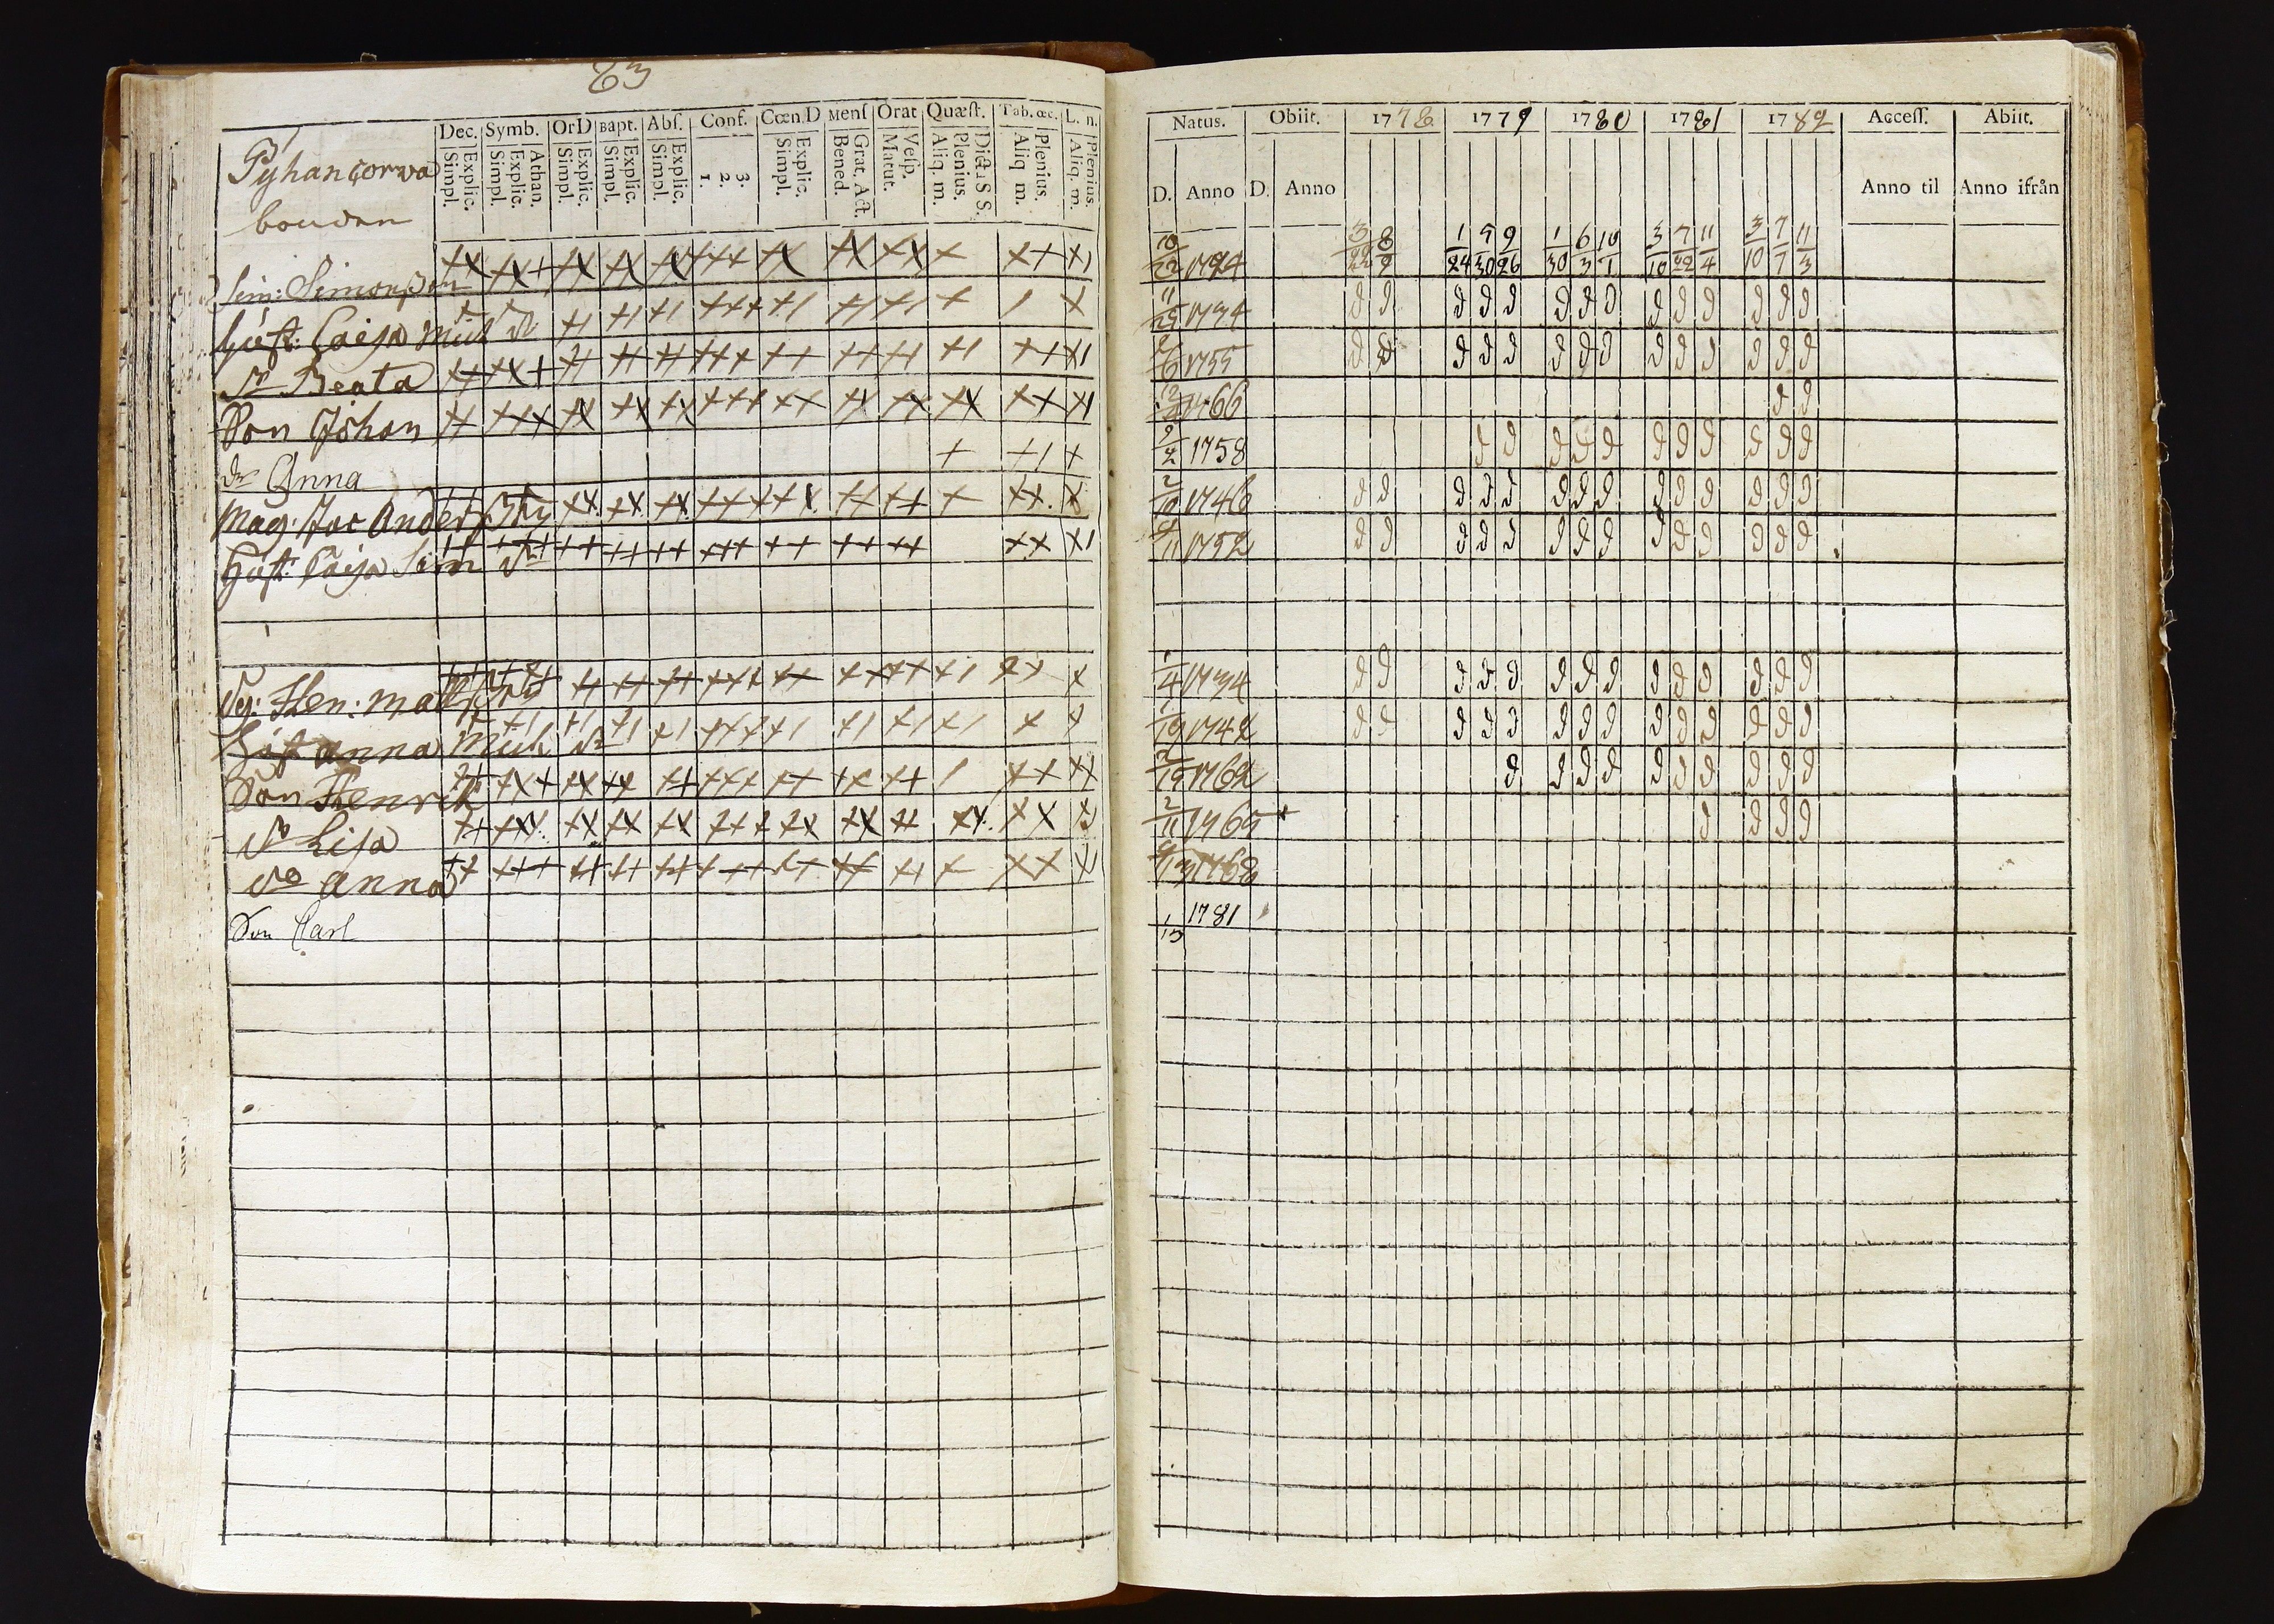 63
Dec. Symb. OrD Bapt. Abſ. Conf. Cœn.D Menſ Orat Quæſt. Tab. œc. L. n.
Explic. Simpl. Athan. Explic. Simpl. Explic. Simpl. Explic. Simpl. Explic. Simpl. 3. 2. 1. Explic. Simpl. Grat. Act. Bened. Veſp. Matut. Dicta S S. Plenius. Aliq. m. Plenius. Aliq m. Plenius. Aliq. m.
Pyhancorwa
bouden
Sim: Simonsson
Hust: Caisa Mich dr
dr Beata
Son Johan
dr Anna
Mag: Jac Anders
Hust: Caisa Sim dr
Hen: Matts
Hust Anna Mich dr
Son Henrik
dr Lisa
do Anna
Son Carl
Natus. Obiit. 1778 1779 1780 1781 1782 Acceſſ. Abiit.
D. Anno D. Anno Anno til Anno ifrån
10/22 1724 3/22 8/9 1/24 5/30 9/26 1/30 6/3 10/1 3/10 7/22 11/4 3/10 7/7 11/3
11/25 1734 d d d d d d d d d d d d d d
1755 d d d d d d d d d d d d d d
1766 d d
9/2 1758 d d d d d d d d d d d
2/10 1746 d d d d d d d d d d d d d d
1752 d d d d d d d d d d d d d d
1/4 1734 d d d d d d d d d d d d d d
1742 d d d d d d d d d d d d d d
2/15 1762 d d d d d d d d d d
2/11 1765 d d d d
1768
1/13 1781